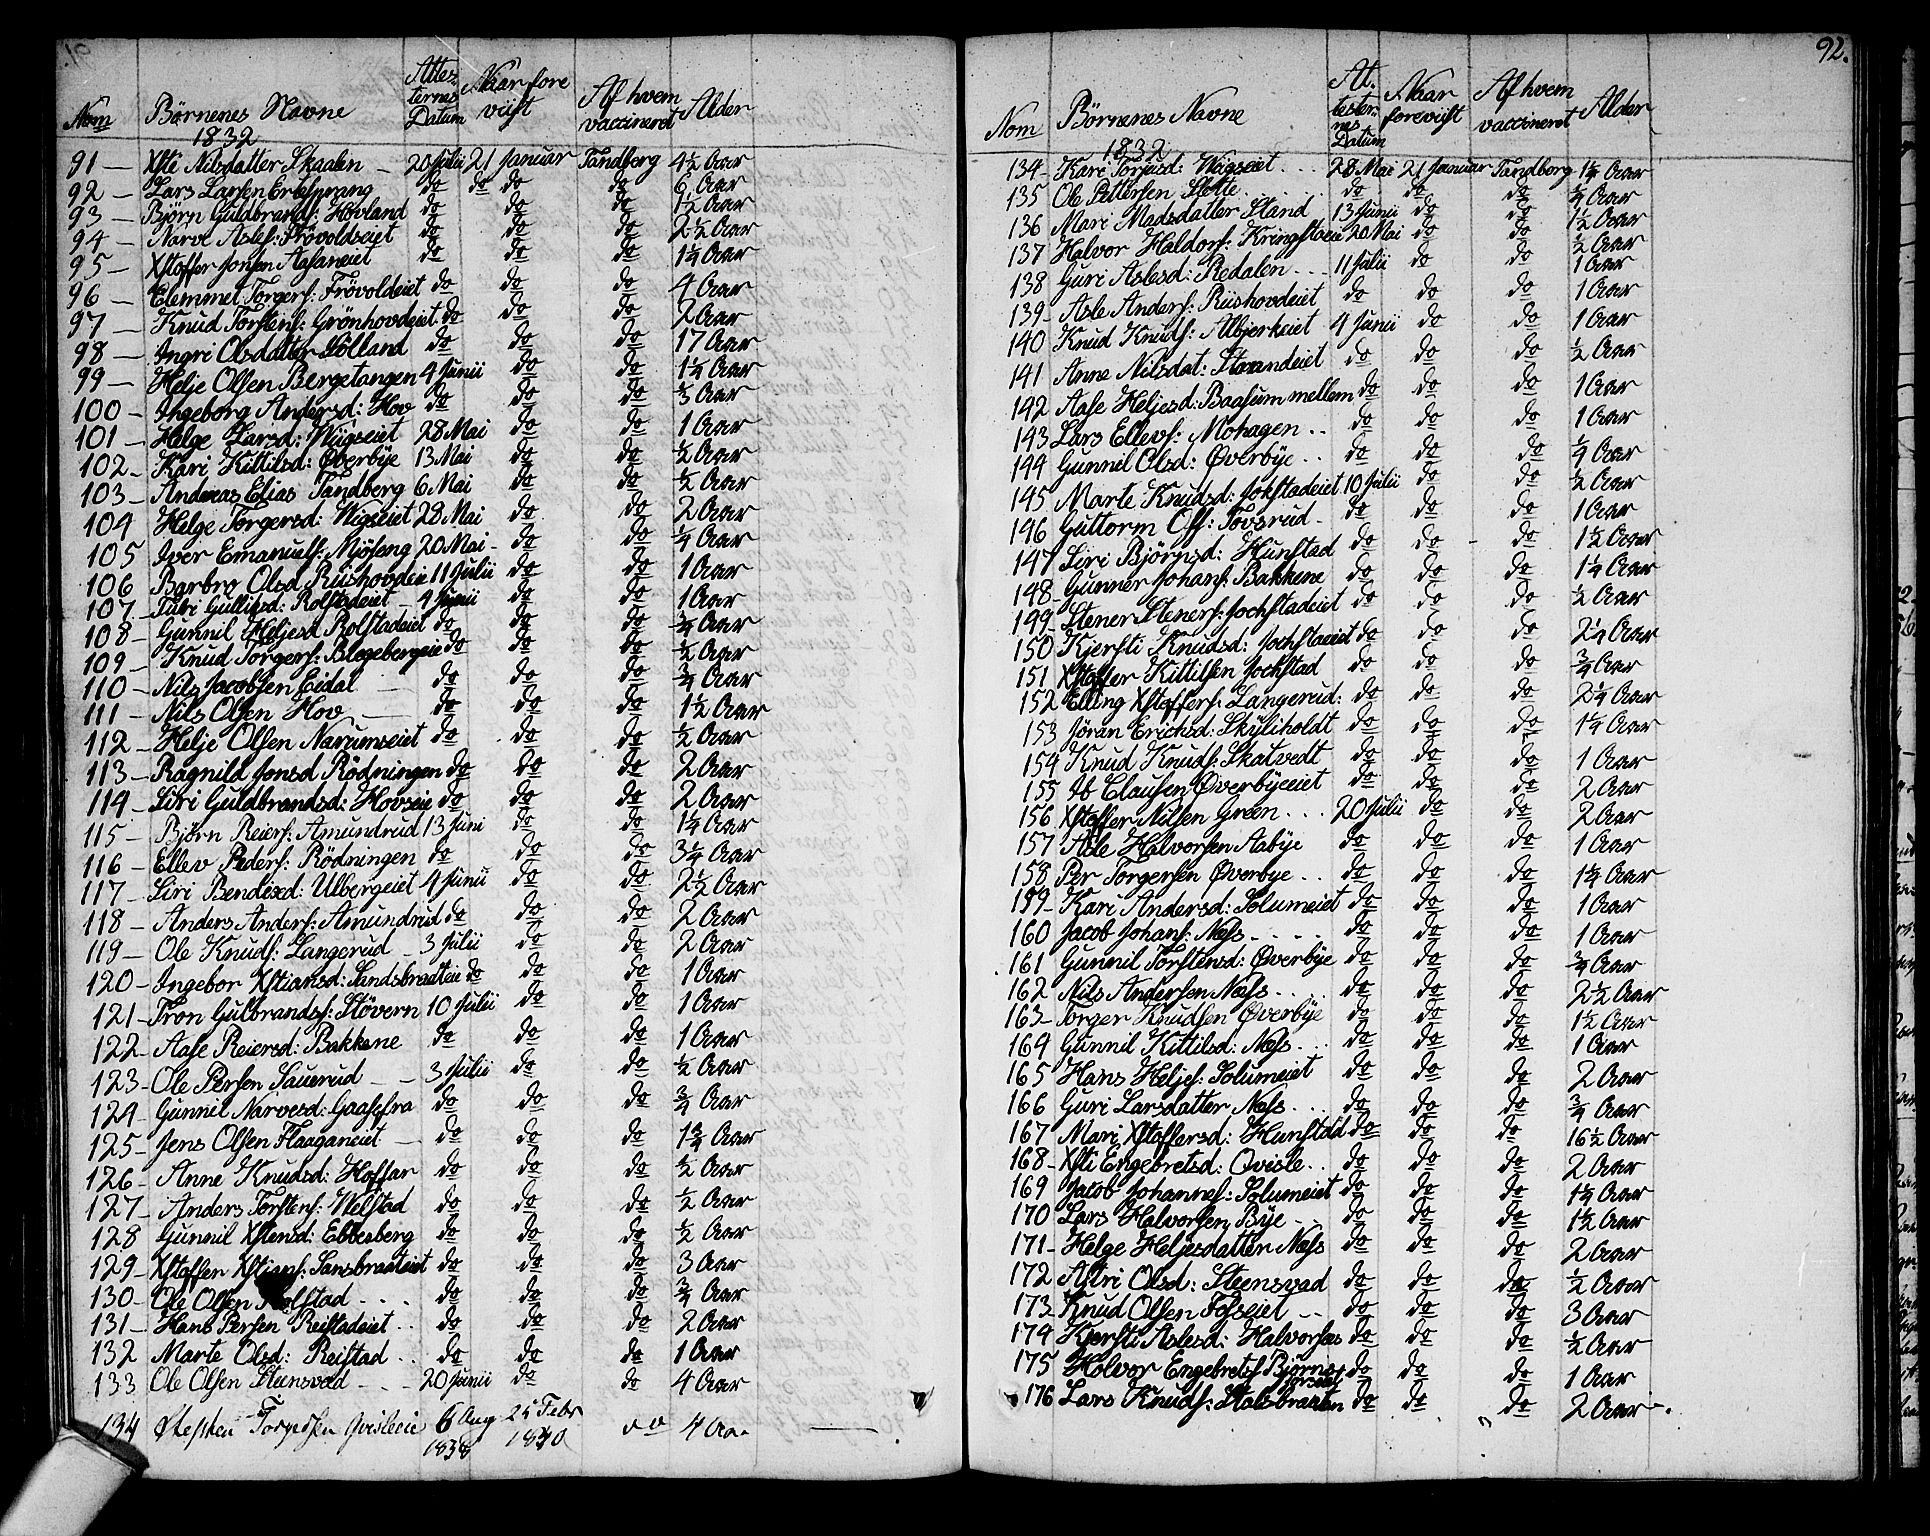 Nom Børnenes Navne 1832 Attesternes Datum Naar foreviist Af hvem vaccineret Alder
91 — Xste Nilsdatter Skaalen — 20 Julii 21 Januar Tandberg 4½ Aar
92 — Lars Larsen Ertesprang do do do do 6 Aar
93 — Bjørn Guldbrands: Hovland do do do 1½ Aar
94 — Narve Asles: Frövoldseiet do do do 2½ Aar
95 — Xstoffer Jonsen Aasaneiet do do do 1¼ Aar
96 — Clemmet Torgers: Frövoldeiet do do do 4 Aar
97 — Knud Torstens: Grönhovdeiet do do do 2 Aar
98 — Ingri Olsdatter Lölland do do do 17 Aar
99 — Helje Olsen Bergetangen 4 Junii do do 1¼ Aar
100 — Ingeborg Andersd: Hov do do do Aar
101 — Helge Larsd: Wiigseiet 28 Mai do do 1 Aar
102 — Kari Kittilsd: Øverbÿe 13 Mai do do ½ Aar
103 — Andreas Elias Tandberg 6 Mai do do ½ Aar
104 Helge Torgersd: Wigseiet 28 Mai do do 2 Aar
105 Iver Emanuels: Mjöseng 20 Mai - do do ¼ Aar
106 Barbro Olsd Riishovdeie 11 Julii do do 1 Aar
107 — Turi Gulliksd: Rolstadeiet — 4 Junii do do 1 Aar
108 — Gunnil Heljesd Rolstadeiet do do do ¾ Aar
109 — Knud Torgers: Blegebergeie do do do ½ Aar
110 — Nils Jacobsen Eidal — do do do ¾ Aar
111 — Nils Olsen Hov — do do do 1½ Aar
112 — Helje Olsen Narumseiet do do do ½ Aar
113 — Ragnild Jonsd Rödningen do do do 2 Aar
114 — Siri Guldbrandsd: Hovseie do do do 2 Aar
115 — Björn Reiers: Amundrud 13 Juni do do 1¼ Aar
116 — Ellev Peders: Rödningen do do do 3¼ Aar
117 — Siri Bendixd: Ulbergeiet 4 Junii do do 2½ Aar
118 — Anders Anders: Amundrud do do do 2 Aar
119 — Ole Knuds: Langerud — 3 Julii do do 2 Aar
120 — Ingebor Xstiansd: Sandsbraateie do do do 1 Aar
121 — Tron Gulbrands: Stövern 10 Julii do do 1 Aar
122 — Aase Reiersd: Bakkene do do do 1 Aar
123 — Ole Persen Sauerud — — 3 Julii do do ½ Aar
124 — Gunnil Narvesd: Gaasefra do do do ¾ Aar
125 — Jens Olsen Flaaganeiet — do do do 1¾ Aar
126 — Anne Knudsd: Hoffar do do do ½ Aar
127 — Anders Torstens: Welstad do do do ½ Aar
128 Gunnil Xstensd: Ebbesberg do do do ½ Aar
129 — Xstoffen Xstians: Sansbraateiet do do do 3 Aar
130 — Ole Olsen Rolstad - - - do do do ¾ Aar
131 — Hans Persen Reistadeiet - - do do do 2 Aar
132 Marte Olsd: Reistad - - do do do 1 Aar
133 Ole Olsen Steensvad - - - 20 Junii do do 4 Aar
134 Torgersen 6 Aug 1838 25 Febr 1840 4 Aa.
92.
Nom Börnenes Navne 1832 Attesternes Datum Naar foreviist Af hvem vaccineret Alder
134 — Kari Torjusd: Wigseiet . . . 28 Mai 21 Januar Tandberg 1¼ Aar
135 Ole Pettersen Slette . . . . do do do ¾ Aar
136 Mari Madsdatter Stand 13 Junii do do 1½ Aar
137 Halvor Haldors: Kringstaeie 20 Mai do do ½ Aar
138 Guri Aslesd: Redalen . . . 11 Julii do do 1 Aar
139 — Asle Anders: Riishovdeiet do do do 1 Aar
140 Knud Knuds: Albjerkeiet 4 Junii do do 1 Aar
141 Anne Nilsdat: Strandeiet do do do ½ Aar
142 Aase Heljesd: Baaseim mellem do do do 1 Aar
143 Lars Ellevs: Mohagen . . do do do 1 Aar
144 Gunnil Olsd: Øverbÿe . . do do do ¼ Aar
145 Marte Knudsd: Jokstadeiet 10 Julii do do ½ Aar
146 Guttorm Ols: Tovsrud - do do do 1 Aar
147 Siri Björnsd: Hunstad do do do 1½ Aar
148 — Gunner Johans: Bakkene do do do 1¼ Aar
149 — Stener Steners: Jochstadeiet do do do ½ Aar
150 Kjersti Knudsd: Jochstaeiet do do do 2¼ Aar
151 Xstoffer Kittilsen Jochstad do do do ¾ Aar
152 Elling Xstoffers: Langerud: do do do 2¼ Aar
153 Jöran Erichsd: Skÿliholdt do do do 1¼ Aar
154 Knud Knuds: Skatvedt do do do 1 Aar
155 Ib Clausen Øverbÿeeiet do do do 2 Aar
156 Xstoffer Nilsen Green . . . 20 Julii do do 2 Aar
157 Asle Halvorsen Aabÿe do do do 1 Aar
158 Per Torgersen Øverbye . . do do do 1¼ Aar
159 — Kari Andersd: Solumeiet do do do 1 Aar
160 Jacob Johans: Næss - - - - do do do 1 Aar
161 Gunnil Torstensd: Øverbÿe do do do ¾ Aar
162 Nils Andersen Næss - . . do do do 2½ Aar
163 — Torger Knudsen Øverbÿe do do do 1½ Aar
164 Gunnil Kittilsd: Næss . . . do do do 1 Aar
165 Hans Heljes: Solumeiet do do do 2 Aar
166 Guri Larsdatter Næss . . . do do do ¾ Aar
167 Mari Xstoffersd: Hunstad do do do 16½ Aar
168 — Xsti Engebretsd: Qvisle . . do do do 2 Aar
169 Jacob Johannes: Solumeiet do do do 1¼ Aar
170 Lars Halvorsen Bÿe - - do do do 1½ Aar
171 — Helge Heljesdatter Næss do do do 2 Aar
172 Astri Olsd: Steensvad do do do ½ Aar
173 — Knud Olsen Fosseiet - - do do do 3 Aar
174 Kjersti Aslesd: Halvorsas do do do ½ Aar
175 Holvor Engebrets Björnestörseiet do do do 1 Aar
176 Lars Knuds: Stalsbraaten do do do 2 Aar